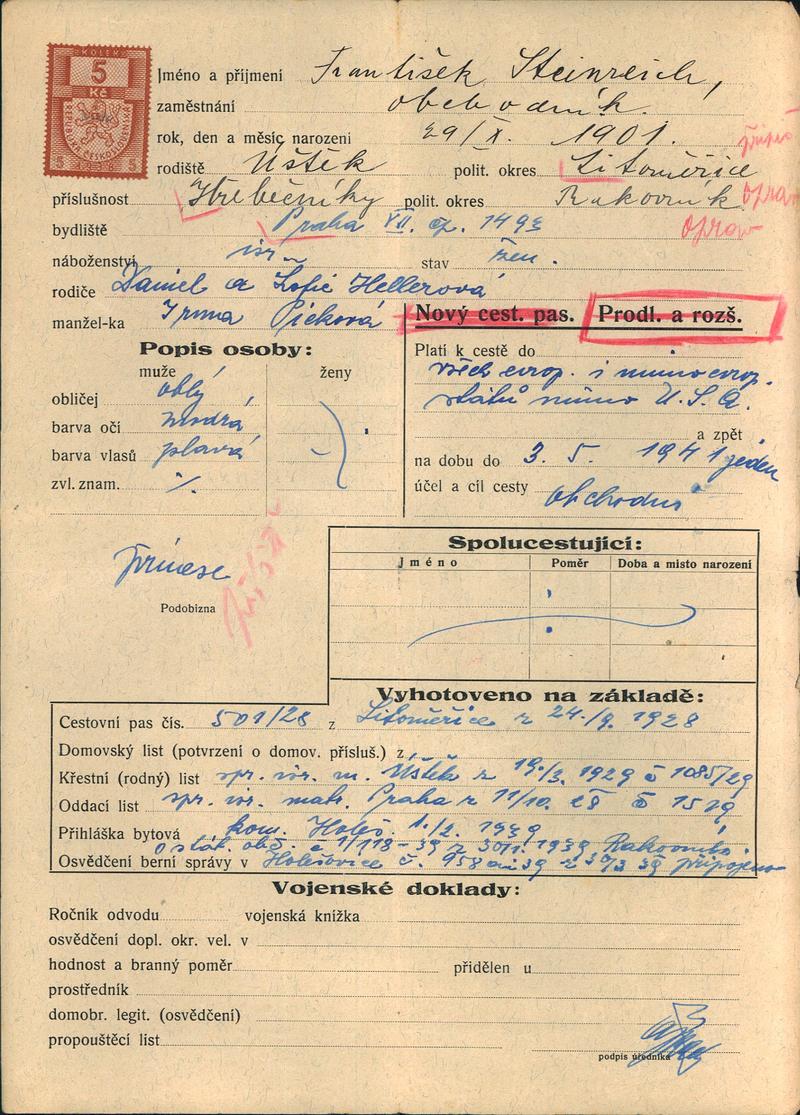 KOLEK
5
Kč
REPUBLIKA ČESKOSLOVENSKÁ
5 5
Jméno a příjmení František Steinreich,
zaměstnání obchodník.
rok, den a měsíc narozeni 29/X. 1901.
rodiště Úštěk polit. okres Litoměřice
příslušnost Hřebečníky polit. okres Rakovník oprav
bydliště Praha VII. čp. 1493 oprav
náboženství isr. stav žen.
rodiče Daniel a Žofie Hellerová
manžel-ka Irma Picková
Nový cest. pas. Prodl. a rozš.
Popis osoby:
muže ženy
obličej oblý
barva očí modrá
barva vlasů plavá
zvl. znam. %
Platí k cestě do
všech evrop. i mimoevrop.
států mimo U.S.A.
a zpět
na dobu do 3. 5. 1941 jeden
účel a cíl cesty obchodní
přinese
Podobizna
Spolucestující:
Jméno Poměr Doba a misto narození
Vyhotoveno na základě:
Cestovní pas čís. 501/28 z Litoměřice z 24./9. 1928
Domovský list (potvrzení o domov. přísluš.) z
Křestní (rodný) list spr. isr. m. Úštěk z 19./3. 1929 č 1085/29
Oddací list spr. isr. matr. Praha z 11/10. č
Přihláška bytová kom. Holeš. 1./2. 1939
o stát. obč. č 1/118-39 z 30/1. 1939 Rakovník
Osvědčení berní správy v Holešovice č. 958 39 z 30/3 39 připojeno
Vojenské doklady:
Ročník odvodu vojenská knížka
osvědčení dopl. okr. vel. v
hodnost a branný poměr přidělen u
prostředník
domobr. legit. (osvědčení)
propouštěcí list
podpis úředníka